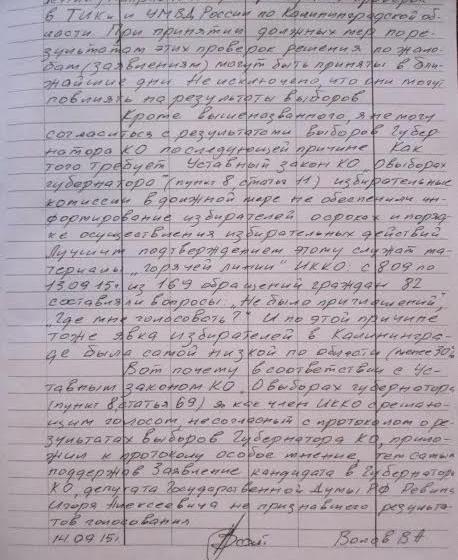 в ТИКи и УМВД России по Калининградской об-
ласти. При принятии должных мер по ре-
зультатам этих проверок решения по жало-
бам (заявлениям) могут быть приняты в бли-
жайшие дни. Не исключено, что они могут
повлиять на результаты выборов
Кроме вышеназванного, я не могу
согласиться с результатами выборов Губер-
натора КО последующей причине Как
того требует Уставный закон КО „О выборах
губернатора" (пункт 8, статья 11) избирательные
комиссии в должной мере не обеспечили ин-
формирование избирателей о сроках и поряд-
ке осуществления избирательных действий
Лучшим подтверждением этому служат ма-
териалы „горячей линии" ИККО: с 8.09 по
13.09.15г. из 169 обращений граждан 82
составляли вопросы: „Не было приглашений",
„Где мне голосовать?" И по этой причине
тоже явка избирателей в Калинингра-
де была самой низкой по области (менее 30%
Вот почему в соответствии с Ус-
тавным законом КО „О выборах губернатора
(пункт 8, статья 69) я, как член ИККО с решаю-
щим голосом, несогласный с протоколом о ре-
зультатах выборов Губернатора КО, прило-
жил к протоколу особое мнение, тем самым
поддержав Заявление кандидата в Губернаторы
КО, депутата Государственной Думы РФ Ревина
Игоря Алексеевича не признавшего результа-
тов голосования
14.09.15г. Волов В А